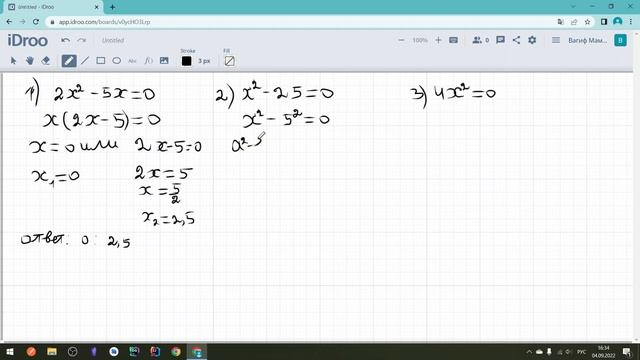 Untitled - iDroo
app.idroo.com/boards/v0ycHO3Lrp
iDroo
Untitled
File
Edit
View
Help
100%
0
Invite
B
Вагиф Мам...
3 px
1) 2x² - 5x = 0
x(2x - 5) = 0
x = 0 или 2x - 5 = 0
x₁ = 0
2x = 5
x = 5/2
x₂ = 2,5
ответ: 0; 2,5
2) x² - 25 = 0
x² - 5² = 0
a² -
3) 4x² = 0
РУС
16:34
04.09.2022